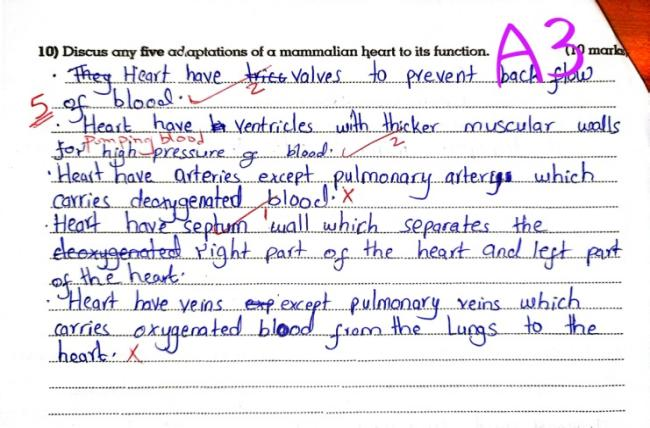 10) Discus any five adaptations of a mammalian heart to its function. (10 marks
A3
· They Heart have valves to prevent back flow
2
5 of blood.
· Heart have ventricles with thicker muscular walls
pumping blood
for high pressure of blood.
2
· Heart have arteries except pulmonary arteries which
carries deoxygenated blood. X
· Heart have septum wall which separates the
1
deoxygenated right part of the heart and left part
of the heart.
· Heart have veins exp except pulmonary veins which
carries oxygenated blood from the Lungs to the
heart. X